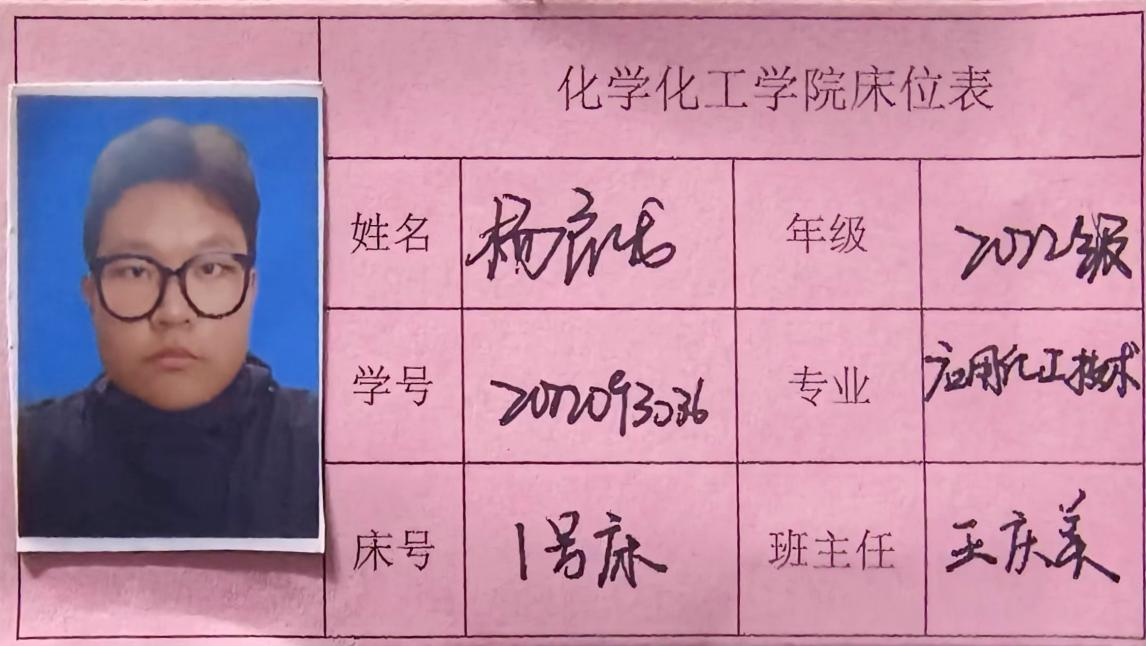 化学化工学院床位表
姓名 杨 年级 2022级
学号 2022093036 专业 应用化工技术
床号 1号床 班主任 王庆美